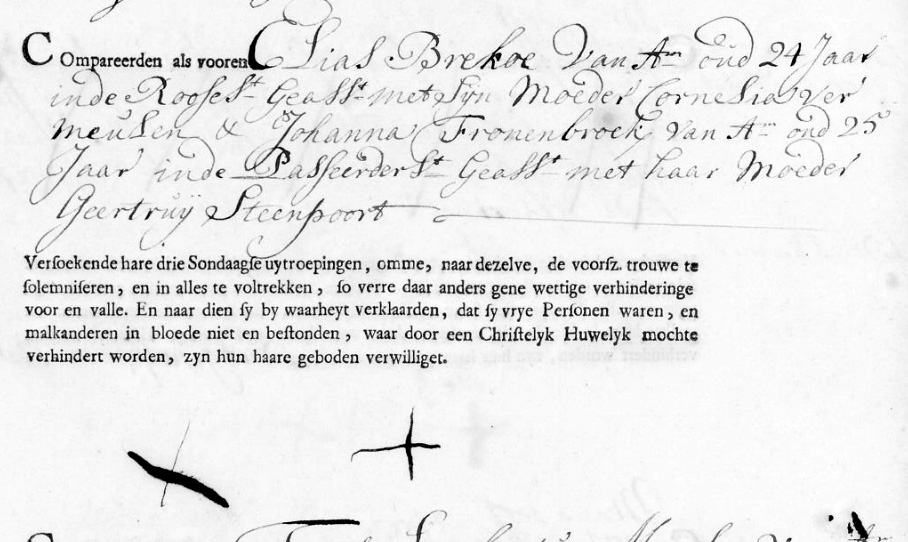 Compareerden als vooren Elias Brekoe Van Am oud 24 Jaar
inde Roosest Geasst met Syn Moeder Cornelia ver
meulen & Johanna Fronenbroek van Am oud 25
Jaar inde Passeerderst Geasst met haar Moeder
Geertruij Steenpoort
Versoekende hare drie Sondaagse uytroepingen, omme, naar dezelve, de voorsz. trouwe te
solemniseren, en in alles te voltrekken, so verre daar anders gene wettige verhinderinge
voor en valle. En naar dien sy by waarheyt verklaarden, dat sy vrye Personen waren, en
malkanderen in bloede niet en bestonden, waar door een Christelyk Huwelyk mochte
verhindert worden, zyn hun haare geboden verwilliget.